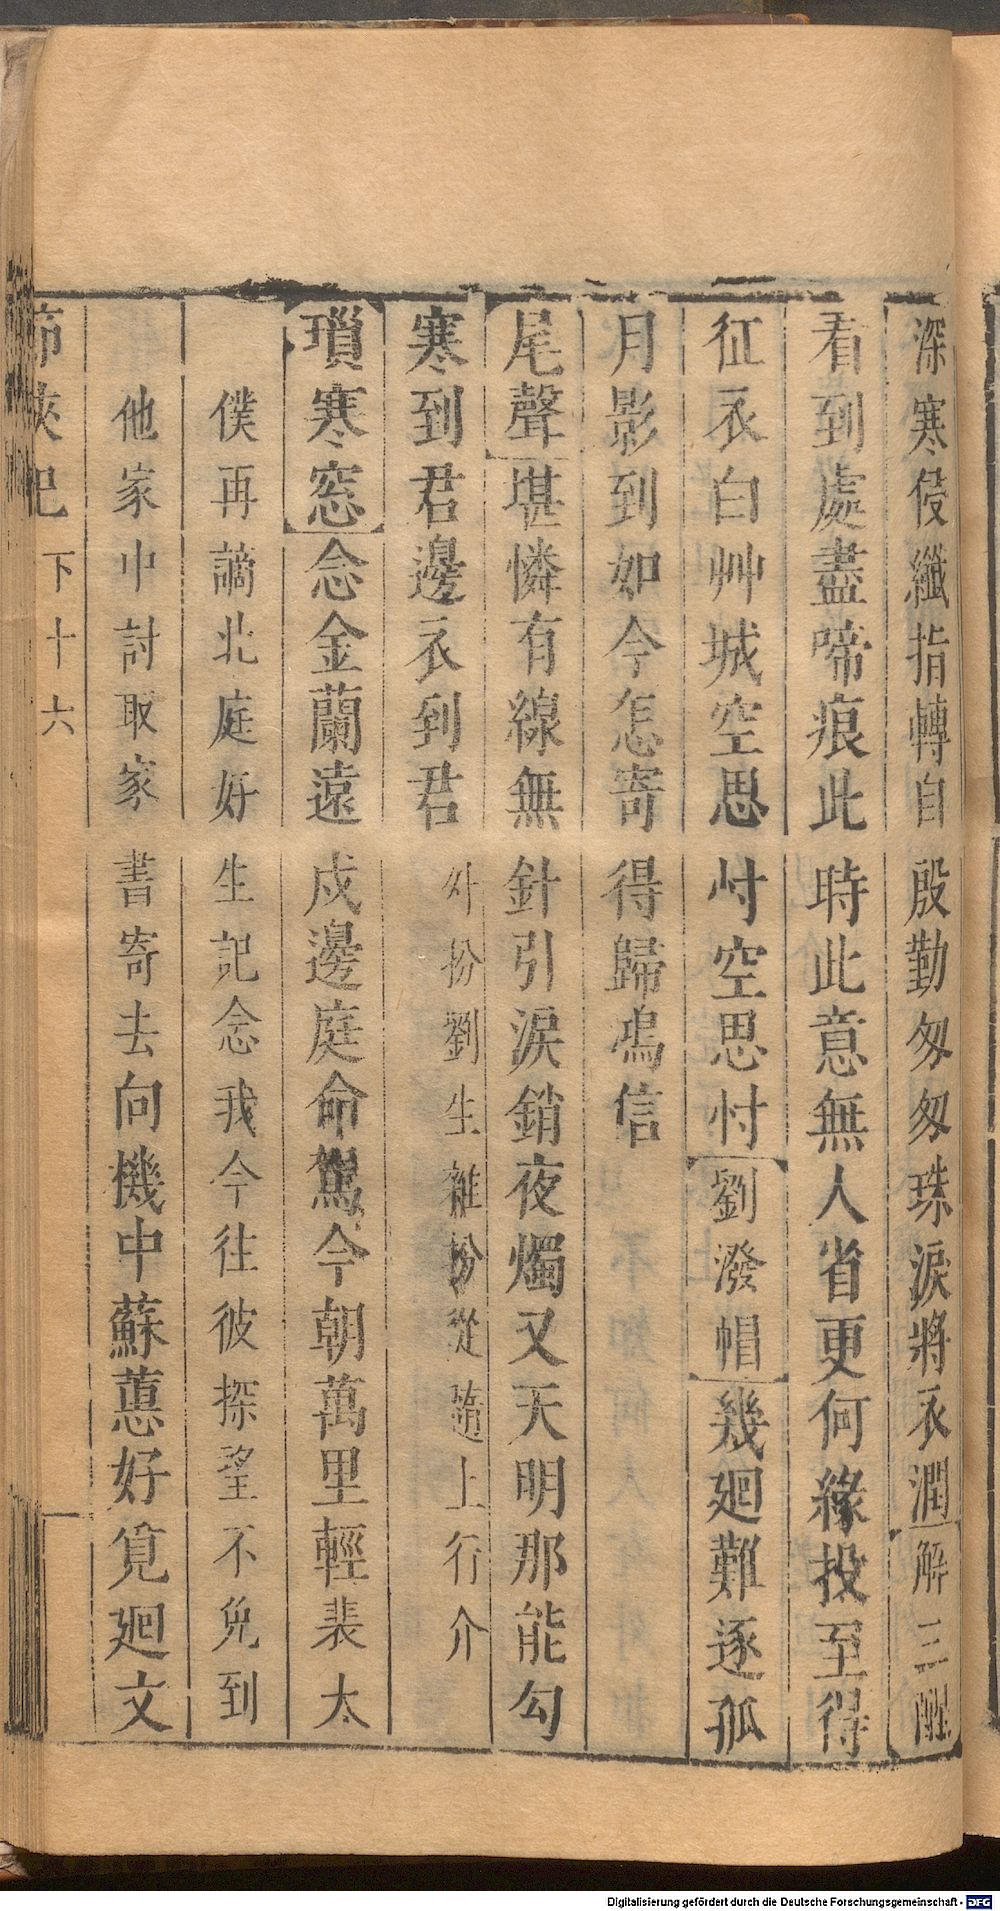 深寒侵纖指轉自殷勤匆匆珠淚將衣潤解三酲
看到處盡啼痕此時此意無人省更何緣投至得
征衣白艸城空思忖空思忖劉潑帽幾廻難逐孤
月影到如今怎寄得歸鴻信
尾聲堪憐有線無針引淚銷夜燭又天明那能勾
寒到君邊衣到君外扮劉生雜扮從隨上行介
瑣寒窓念金蘭遠戍邊庭命駕今朝萬里輕裴太
僕再謫北庭好生記念我今往彼探望不免到
他家中討取家書寄去向機中蘇蕙好覓廻文
節俠記 下 十六
Digitalisierung gefördert durch die Deutsche Forschungsgemeinschaft - DFG